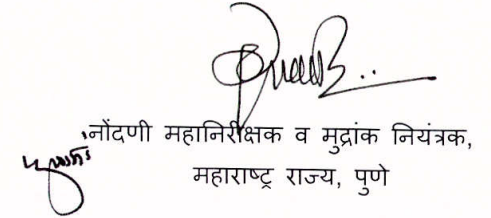 नोंदणी महानिरीक्षक व मुद्रांक नियंत्रक,
महाराष्ट्र राज्य, पुणे